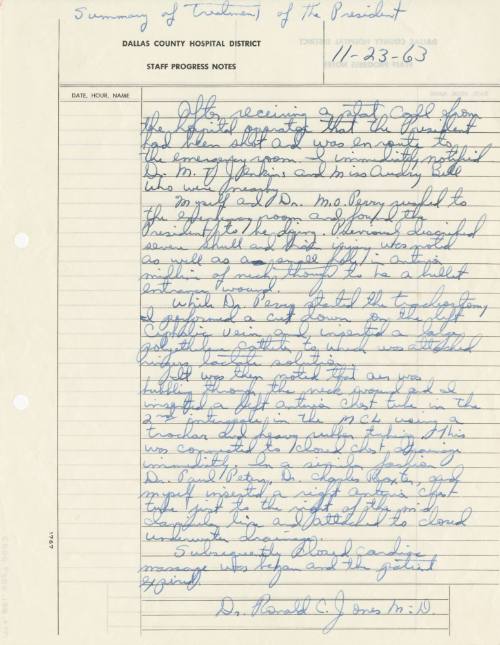 Summary of Treatment of the President
DALLAS COUNTY HOSPITAL DISTRICT
STAFF PROGRESS NOTES
11-23-63
DATE, HOUR, NAME
After receiving a stat call from
the hospital operator that the President
had been shot and was enroute to
the emergency room I immediately notified
Dr. M. T. Jenkins and Miss Audrey Bell
who were nearby
Myself and Dr. M.O. Perry rushed to
the emergency room and found the
President to be dying. Previously described
severe skull and brain injury was noted
as well as a small hole in anterior
midline of neck thought to be a bullet
entrance wound.
While Dr. Perry started the tracheostomy
I performed a cut down on the left
cephalic vein and inserted a large
polyethylene catheter to which was attached
ringers lactate solution.
It was then noted that air was
bubbling through the neck wound and I
inserted a left anterior chest tube in the
2nd interspace in the MCL using a
trochar and heavy rubber tubing. This
was connected to closed chest drainage
immediately. In a similar fashion
Dr. Paul Peters, Dr. Charles Baxter, and
myself inserted a right anterior chest
tube just to the right of the mid
clavicular line and attached to closed
underwater drainage.
Subsequently closed cardiac
massage was began and the patient
expired.
Dr. Ronald C. Jones M.D.